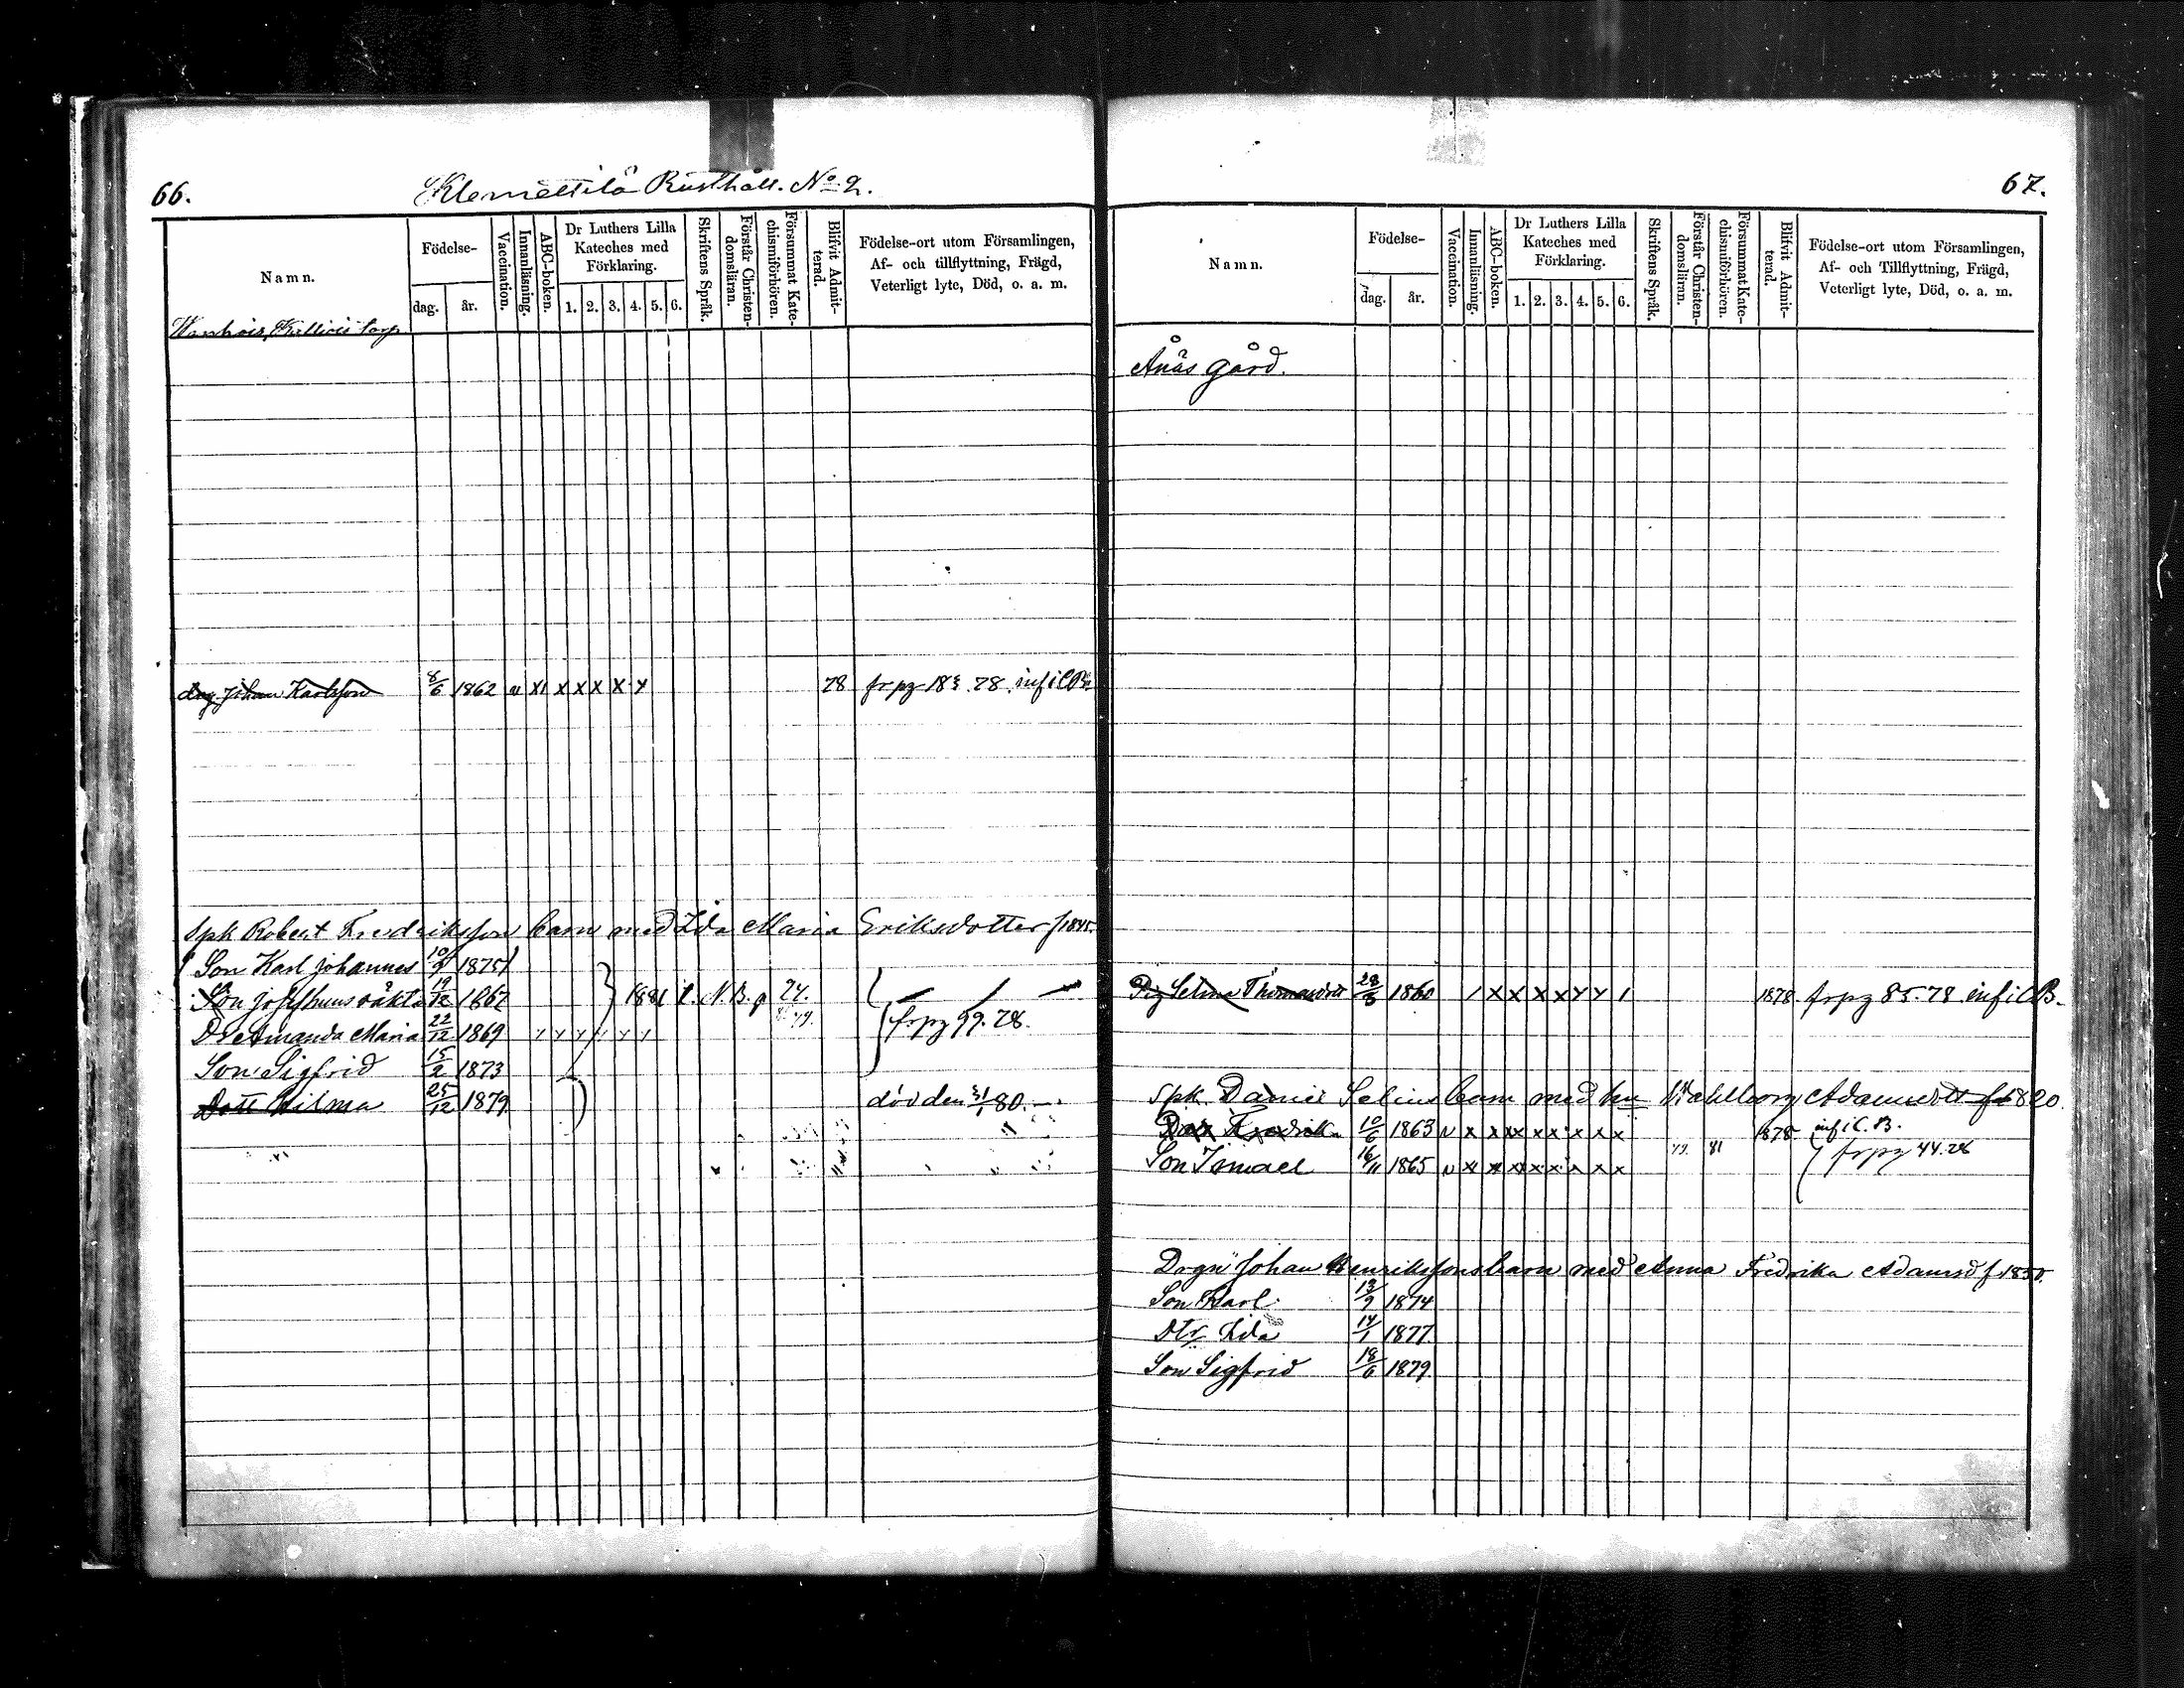 66.
Klemettilä Rusthåll. No 2.
Namn.
Födelse-
dag.
år.
Vaccination.
Innanläsning.
ABC-boken.
Dr Luthers Lilla Kateches med Förklaring.
1. 2. 3. 4. 5. 6.
Skriftens Språk.
Förstår Christendomsläran.
Försummat Katechismiförhören.
Blifvit Admitterad.
Födelse-ort utom Församlingen,
Af- och tillflyttning, Frägd,
Veterligt lyte, Död, o. a. m.
torp
drg Johan Karlsson 8/6 1862 x x x x y 78 fr pg 183. 78. inf i CB.
Spk Robert Fredriksson barn med Ida Maria Eriksdotter f 1845.
Son Karl Johannes 10/9 1875
Son Josephus oäkta 19/12 1867 1881 N.B. 74.
Dr Amanda Maria 22/12 1869 79. frpg 99. 78.
Son Sigfrid 15/2 1873
Dott Hilma 25/12 1879 död den 31/1 80.
67.
Namn.
Födelse-
dag.
år.
Vaccination.
Innanläsning.
ABC-boken.
Dr Luthers Lilla
Kateches med
Förklaring.
1. 2. 3. 4. 5. 6.
Skriftens Språk.
Förstår Christendomsläran.
Försummat Katechismiförhören.
Blifvit Admitterad.
Födelse-ort utom Församlingen,
Af- och Tillflyttning, Frägd,
Veterligt lyte, Död, o. a. m.
Ånäs gård.
Pig Selma Thomasdotr 1860 / x x x x y y 1 1878 frpg 85. 78 inf i C.B.
Spk. Daniel Selins barn med hu Wahlborg Adamsdott f 1820
Dotr Fredrika 10/6 1863 x x x x x x x x 1878 inf i C.B.
Son Ismael 16/11 1865 79. 81 frpg 44. 78
Drgn Johan Henrikssons barn med Anna Fredrika Adamsd f 1850.
Son Karl 13/9 1874
Dtr Ida 14/1 1877.
Son Sigfrid 18/6 1879.